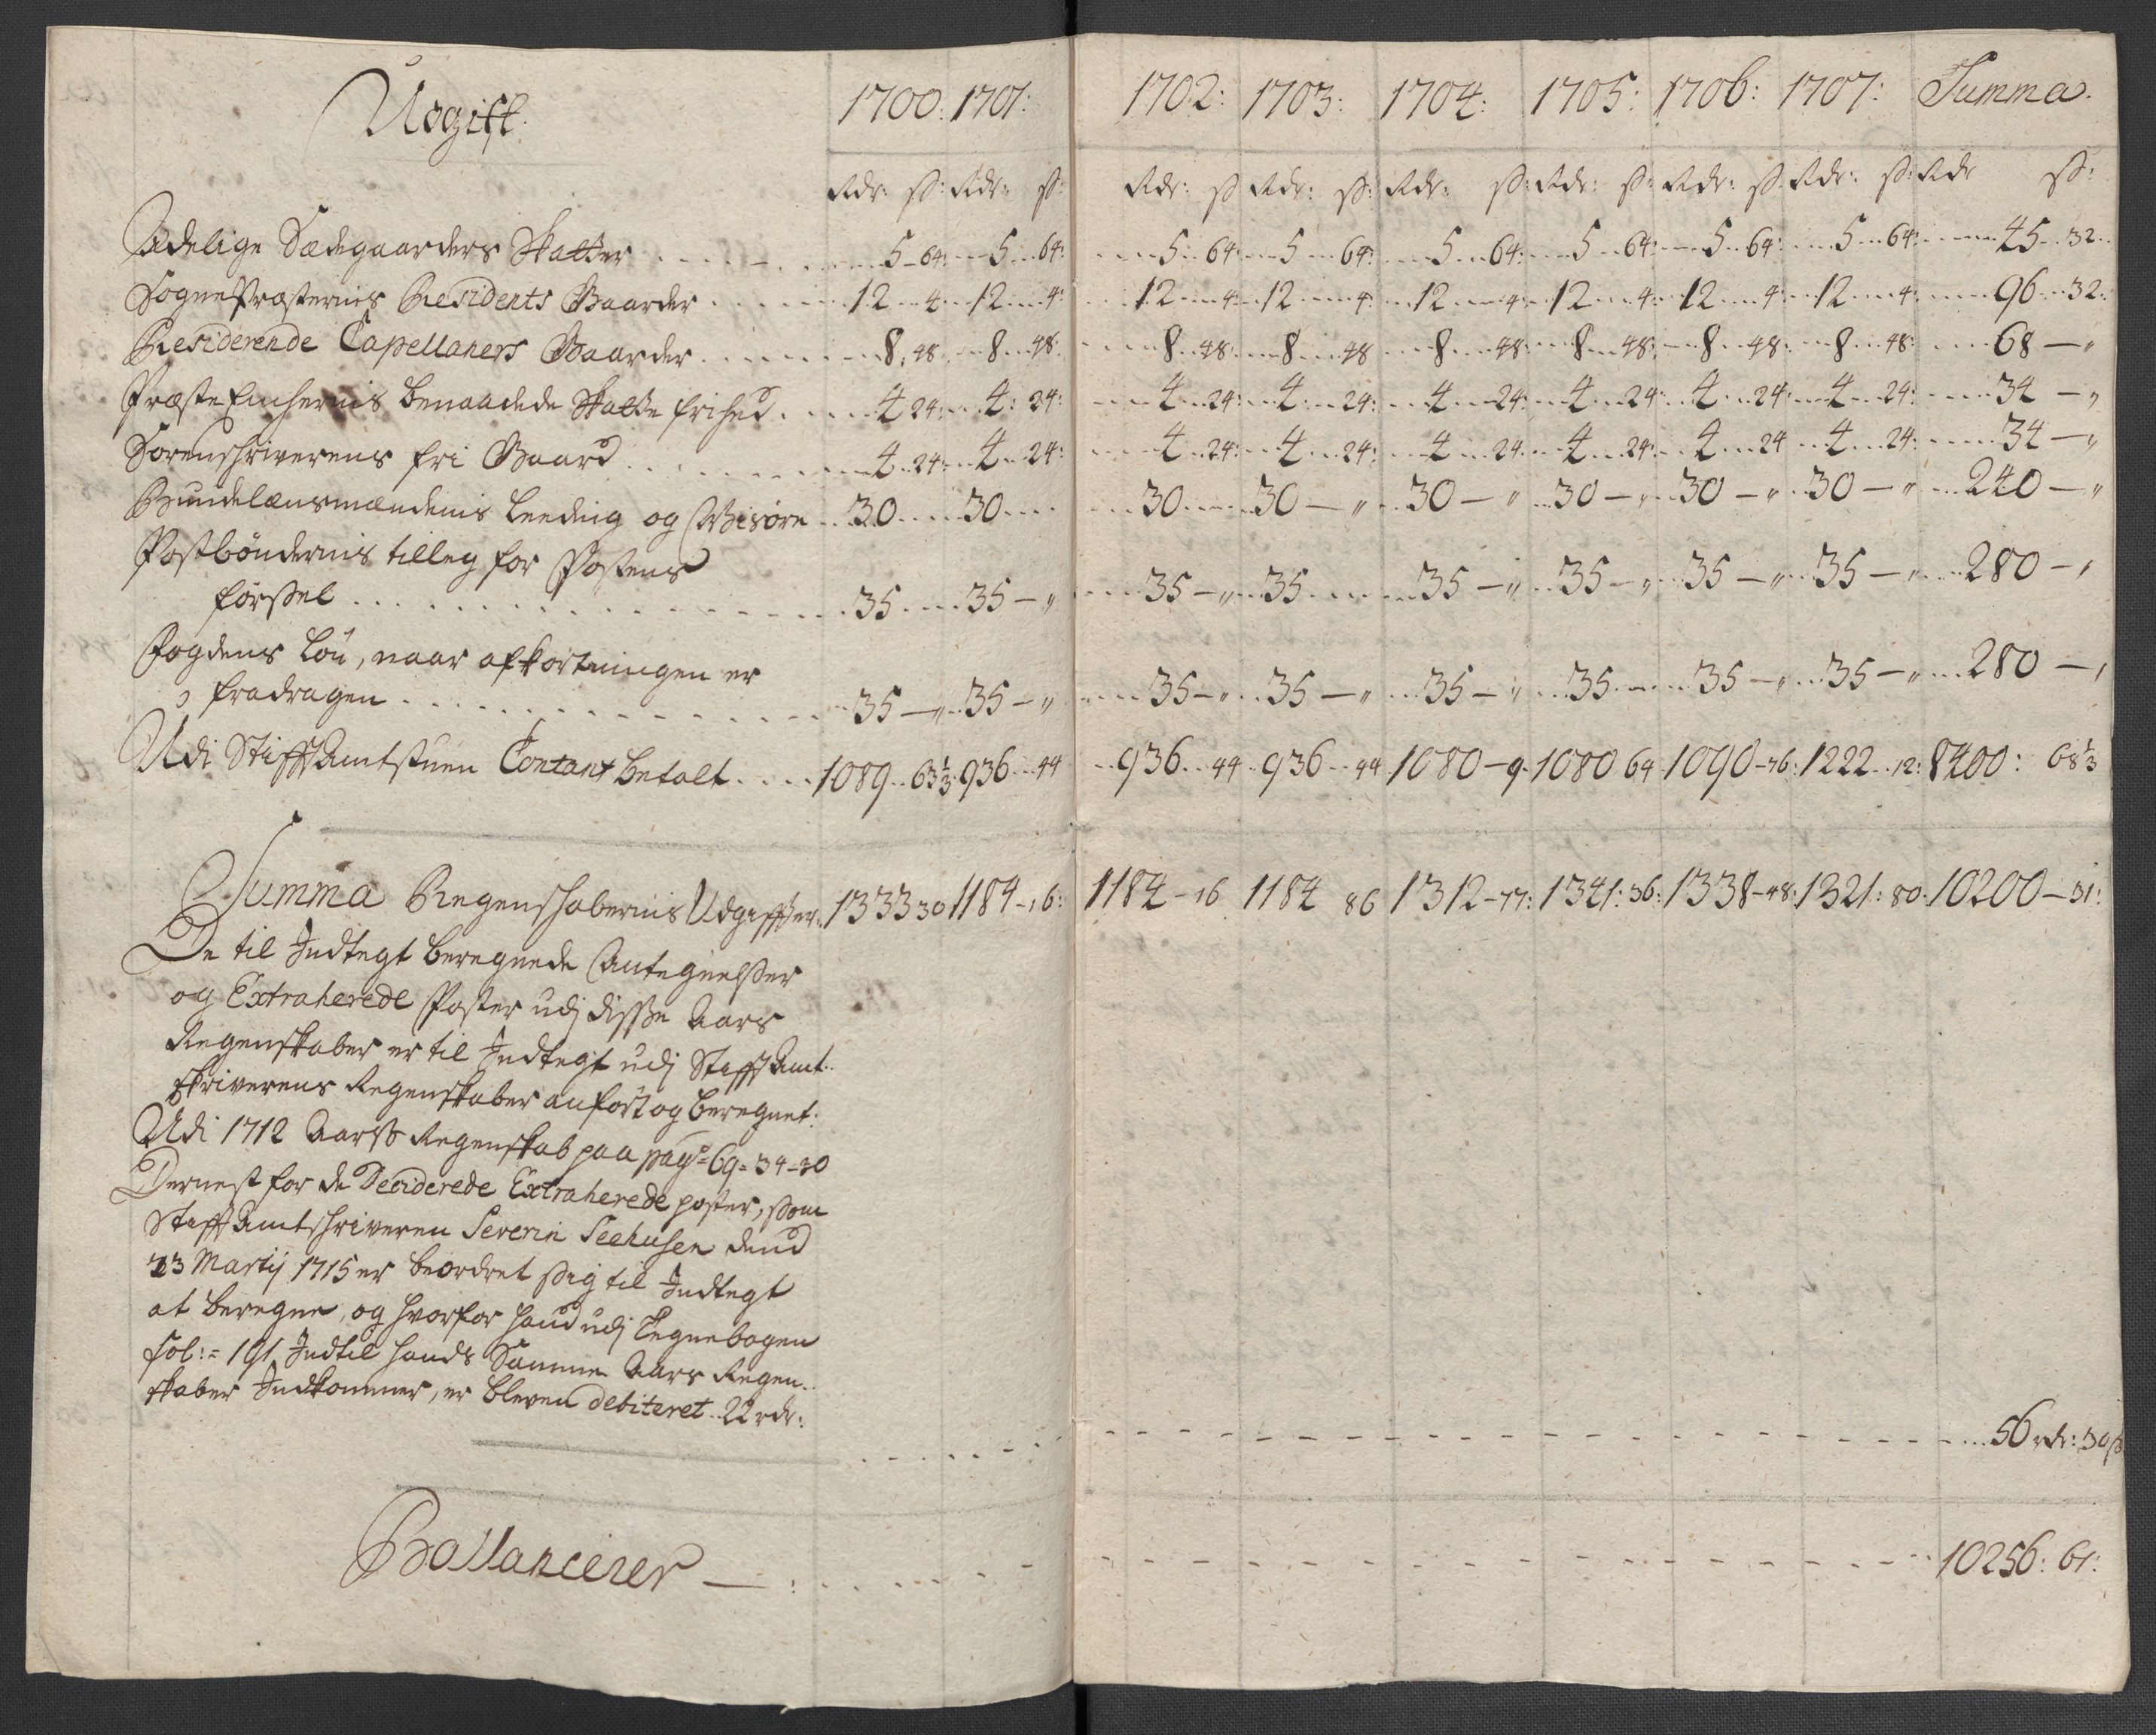 Udgift. 1700: 1701: 1702: 1703: 1704: 1705: 1706: 1707: Summa.
Rdr: ß: Rdr: ß: Rdr: ß Rdr: ß: Rdr: ß: Rdr: ß: Rdr: ß. Rdr: ß: Rdr ß:
Adelige Sædegaarders Skatter 5 64: 5 64: 5 64: 5 64: 5 64: 5 64: 5 64: 5 64: 45 32
SognePræsternis Residents Gaarder 12 4 12 4: 12 4 12 4: 12 4 12 4: 12 4: 12 4: 96 32:
Residerende Capellaners Gaarder 8, 48 8 48: 8 48: 8 48 8 48: 8 48: 8 48: 8 48: 68 — „
PræsteEnchernis benaadede Skatte frihed 4 24: 4: 24: 4 24: 4 24: 4 24: 4 24: 4 24: 4 24: 34 — „
Sorenschriverens fri Gaard 4 24: 4 24: 4 24: 4 24: 4 24. 4 24: 4 24 4 24: 34 — „
Bundelænsmændenis Leeding og Wisøre 30 30 30 30 — „ 30 — „ 30 — „ 30 — „ 30 — „ 240 — „
Postbøndernis tilleg for Postens
førßel 35 35 — „ 35 — „ 35 35 — „ 35 — „ 35 — „ 35 — „ 280 — „
Fogdens Løn, naar afkortningen er
fradragen 35 — „ 35 — „ 35 — „ 35 — „ 35 — „ 35 35 — „ 35 — „ 280 — „
Udi StifftAmtstuen Contant betalt 1089 63⅓ 936 44 936 44 936 44 1080 — 9 1080 64 1090 — 76: 1222 12: 8400: 68⅓
Summa Regenschabernis Udgiffter: 1333 30 1184 — 16: 1184 — 16 1184 86 1312 — 77: 1341: 36: 1338 — 48: 1321: 80: 10200 — 31:
De til Indtegt beregnede Antegnelßer
og Extraherede Poster udj disse Aars
Regenskaber er til Indtegt udj StifftAmt-
skriverens Regenskaber anført og beregnet:
Udi 1712 Aarß Regenskab paa pag: 69 = 34 — 30
Dernest for de Deciderede Extraherede poster, som
StifftAmtschriveren Severin Seehusen dend
23 Martij 1715 er beordret sig til Indtegt
at beregne, og hvorfor hand udj Tegnebogen
fol: = 191 Indtil hands Samme Aars Regen-
skaber Indkommer, er bleven debiteret 22 rdr:
56 rdr: 30 ß
Ballancerer — 10256: 61: